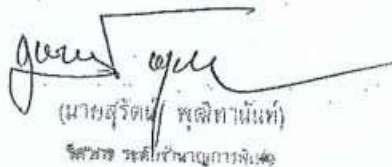 (นายสุรัตน์ พุฒิทานันท์)
วิศวกร ระดับชำนาญการพิเศษ